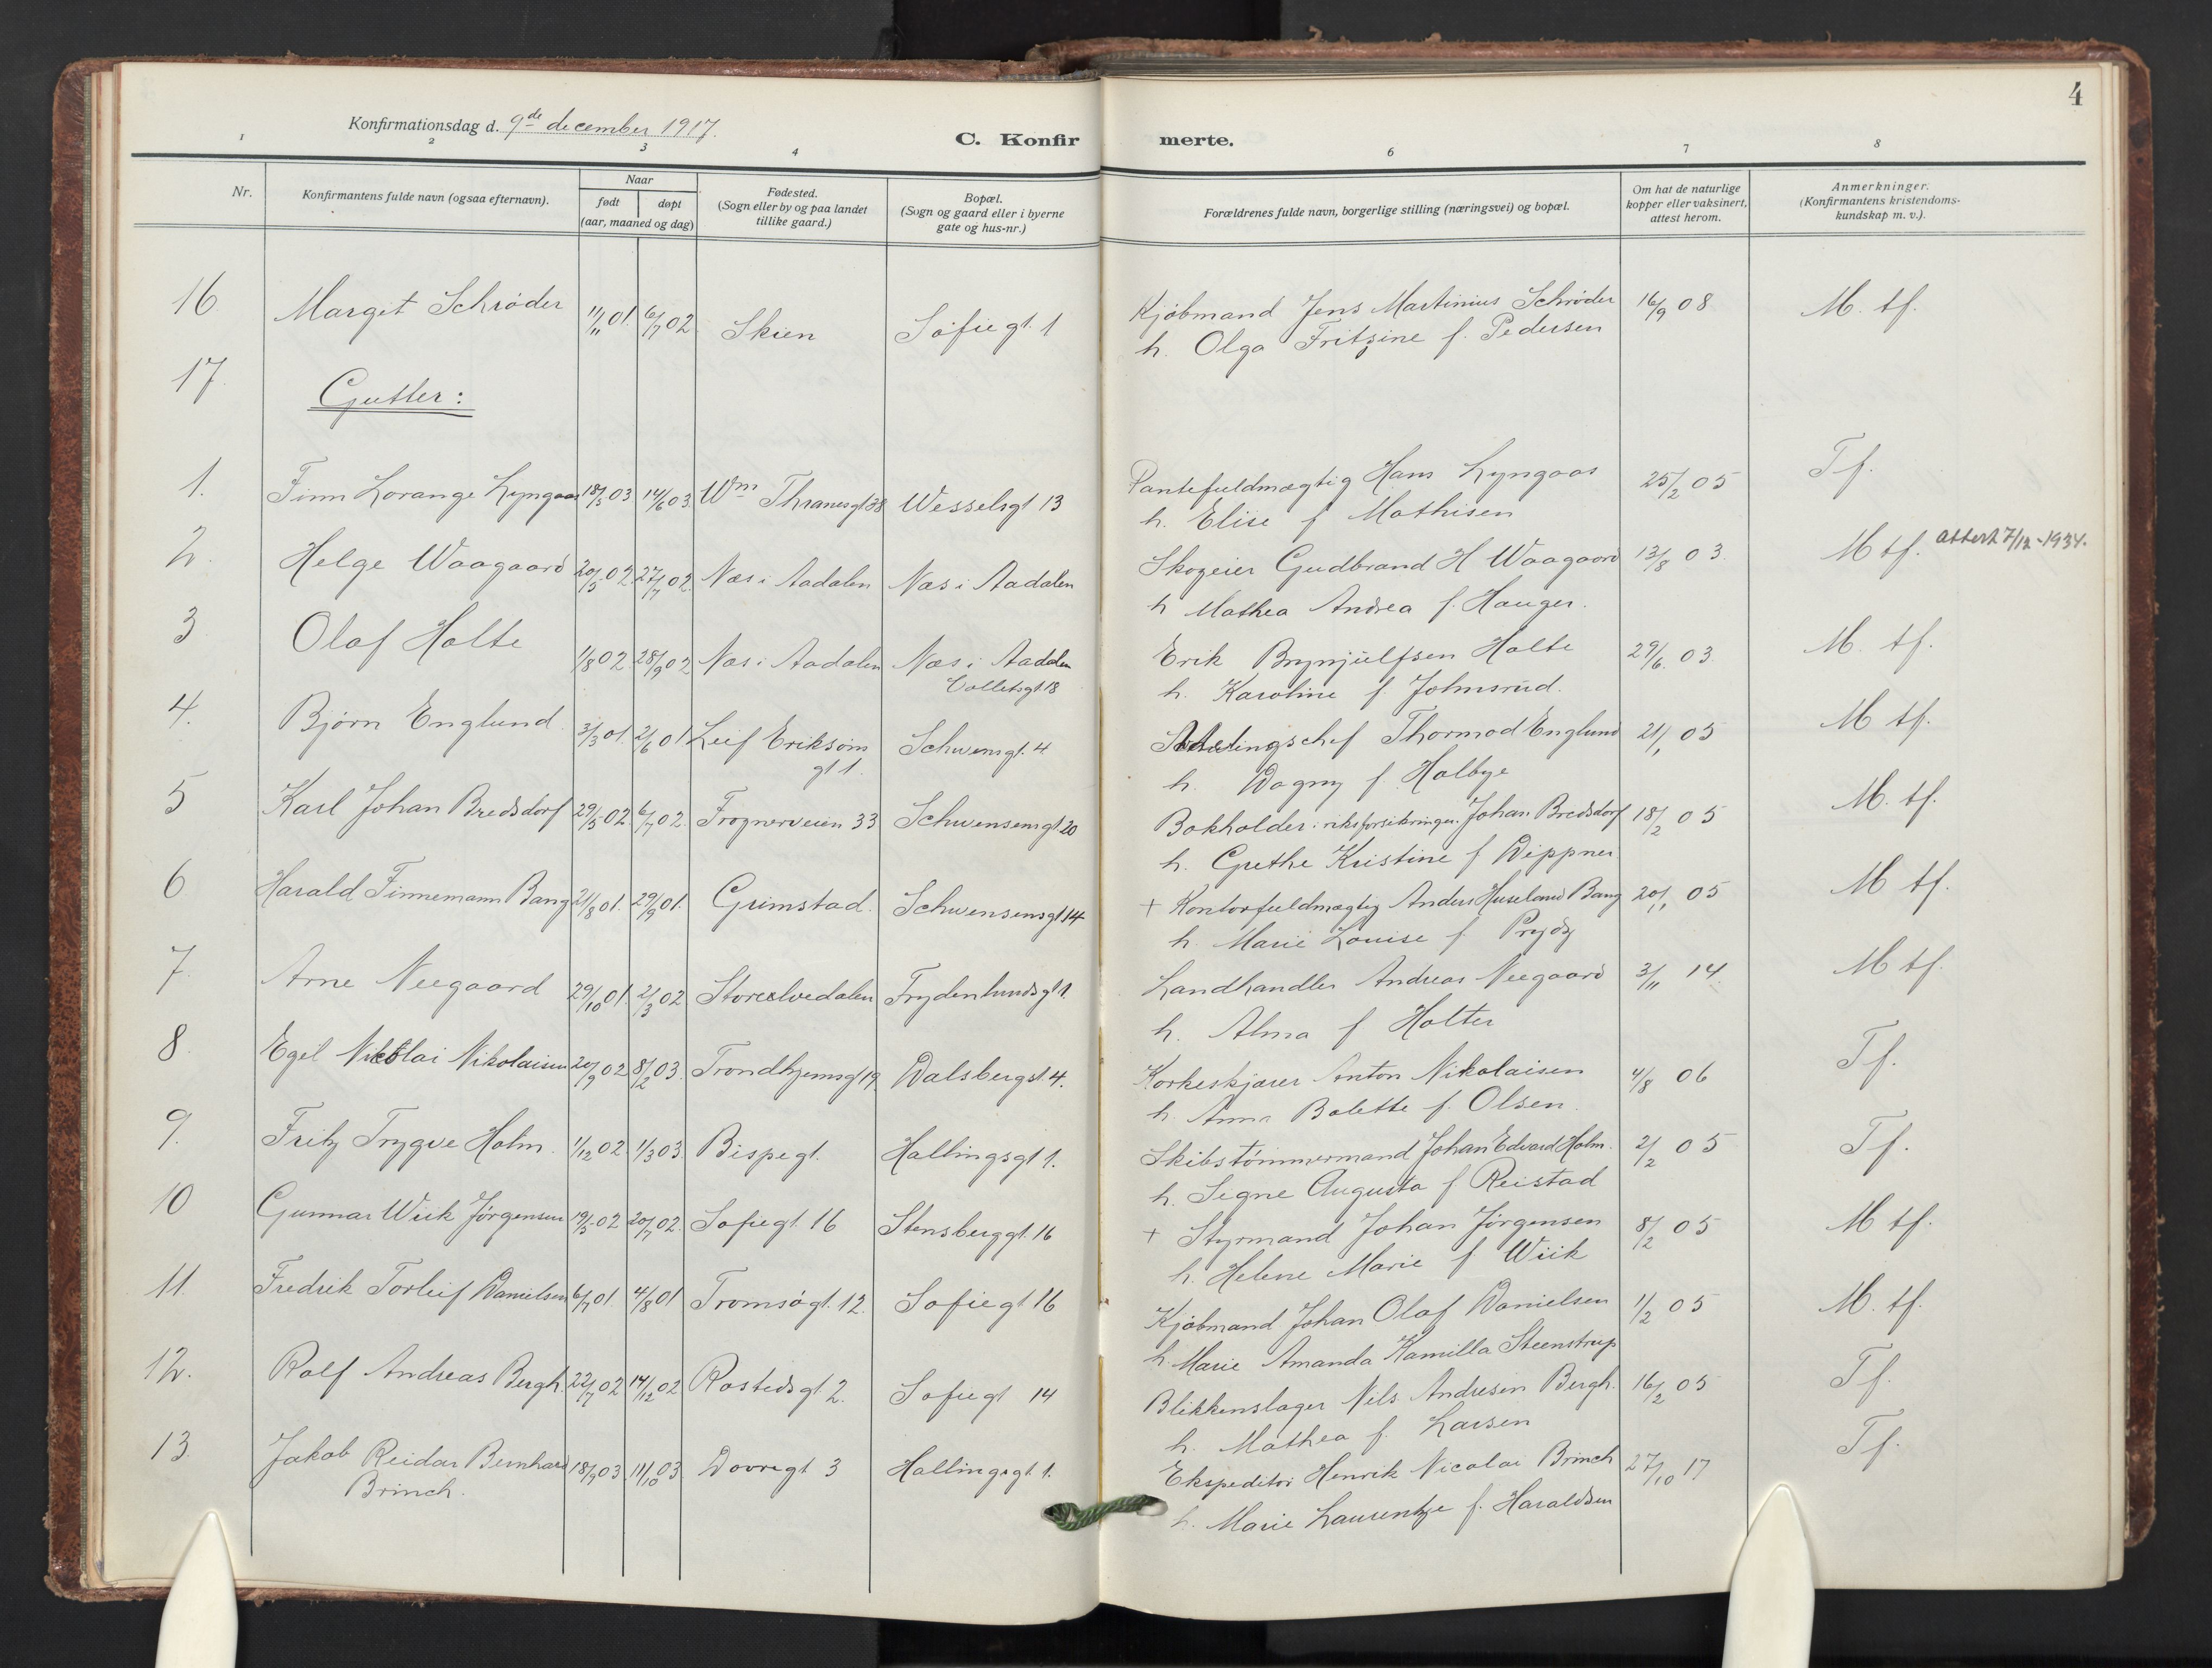 4
Konfirmationsdag d. 9de december 1917.
C. Konfir merte.
1 2 3 4 6 7 8
Nr.
Konfirmantens fulde navn (ogsaa efternavn).
Naar
født døpt
(aar, maaned og dag)
Fødested.
(Sogn eller by og paa landet
tillike gaard.)
Bopæl.
(Sogn og gaard eller i byerne
gate og hus-nr.)
Forældrenes fulde navn, borgerlige stilling (næringsvei) og bopæl.
Om hat de naturlige
kopper eller vaksinert,
attest herom.
Anmerkninger.
(Konfirmantens kristendoms-
kundskap m. v.).
16 Margit Schrøder 11/11 01. 6/7 02 Skien Sofiegt. 1 Kjøbmand Jens Martinius Schrøder 16/9 08 M. tf.
h. Olga Fritzine f. Pedersen
17.
Gutter:
1. Finn Lorange Lyngaas 18/5 03 14/6 03. Wm Thranesgt 38 Wesselsgt 13 Pantefuldmægtig Hans Lyngaas 25/2 05 Tf.
h. Elise f Mathisen
2. Helge Waagaard 20/5 02 27/7 02. Næs i Aadalen Næs i Aadalen Skogeier Gudbrand H Waagaard 13/8 03. M tf. attest 7/12-1934.
h Mathea Andrea f. Hauger.
3 Olaf Holte 1/8 02 28/9 02 Næs i Aadalen Næs i Aadalen Erik Brynjulfsen Holte 29/6. 03. M. tf.
Colletsgt 18
h. Karoline f. Johnsrud.
4. Bjørn Englund 3/3 01. 2/6 01 Leif Eriksøns Schwensgt. 4 Thormod Englund 21/1 05 M tf.
gt 1.
h. Dagny f. Holbye
5 Karl Johan Bredsdorf 29/5 02. 6/7 02. Frognerveien 33 Schwensensgt 20 Bokholder i riksforsikringen Johan Bredsdorf 18/2 05 M. tf.
h. Grethe Kristine f Wippner
6 Harald Finnemann Bang 21/8 01. 29/9 01. Grimstad. Schwensensgt 14 + Kontorfuldmægtig Anders Huseland Bang 20/11 05 M tf.
h. Marie Louise f. Prydz
7. Arne Neegaard 29/10 01. 2/3 02 Storelvedalen Frydenlundsgt 1. Landhandler Andreas Neegaard 3/11 14. M tf.
h. Alma f Holter
8. Egil Nikolai Nikolaisen 20/9 02 8/2 03. Trondhjemsgt 19 Dalsbergst. 4. Korkeskjærer Anton Nikolaisen 4/8 06 Tf.
h. Anna Bolette f. Olsen.
9. Fritz Trygve Holm. 1/12 02. 1/3 03. Bispegt. Hallingsgt 1. Skibstømmermand Johan Edvard Holm. 2/2 05 Tf.
h. Signe Augusta f Reistad
10 Gunnar Wiik Jörgensen 19/5 02 20/7 02. Sofiegt. 16 Stensberggt. 16 + Styrmand Johan Jörgensen 8/2 05 M tf.
h. Helene Marie f. Wiik
11. Fredrik Torleif Danielsen 6/7 01. 4/8 01 Tromsögt. 12. Sofiegt 16 Kjøbmand Johan Olaf Danielsen 1/2 05 M. tf.
h. Marie Amanda Kamilla Steenstrup
12. Rolf Andreas Bergh. 22/7 02 14/12 02 Rostedsgt 2. Sofiegt 14 Blikkenslager Nils Andresen Bergh. 16/2 05 Tf.
h. Mathea f. Larsen
13. Jakob Reidar Bernhard 18/9 03. 11/10 03 Dovregt 3 Hallingsgt 1. Ekspeditör Henrik Nicolai Brinch 27/10 17 Tf.
Brinch.
h. Marie Laurentze f. Haraldsen